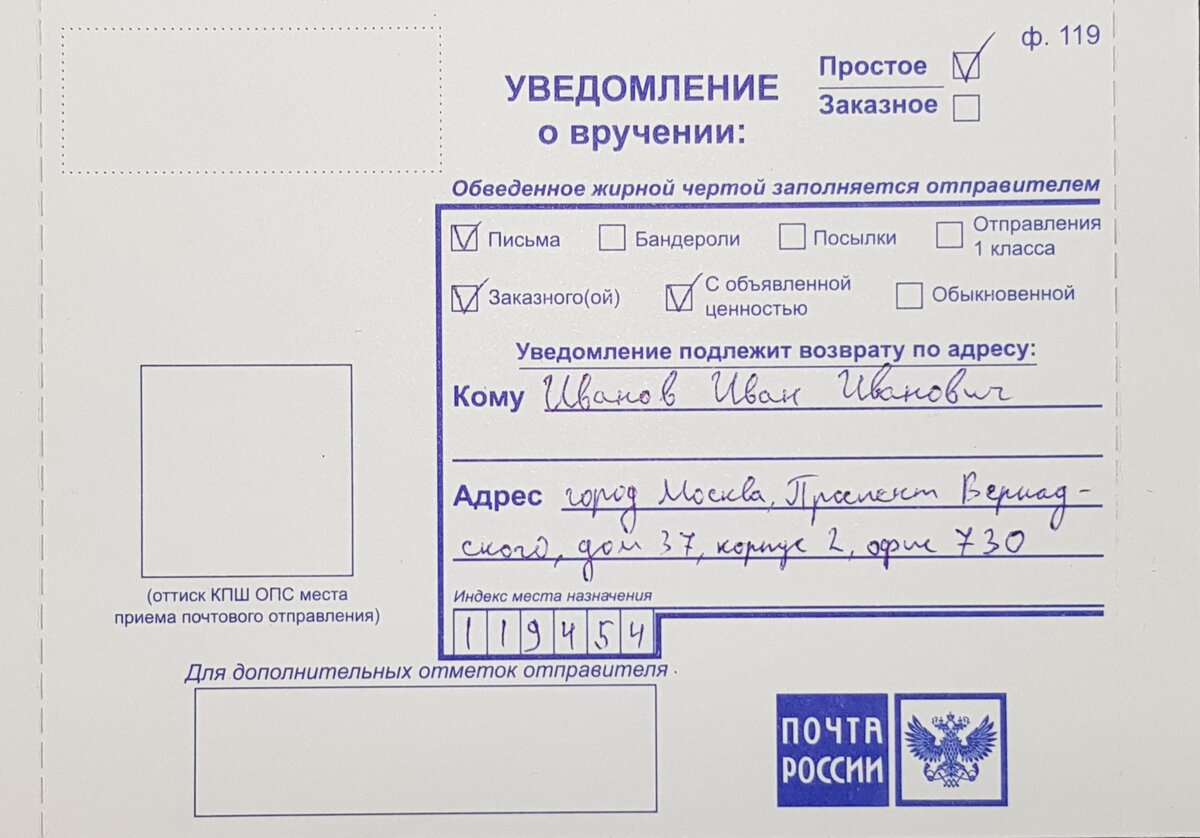 ф. 119
Простое
Заказное
УВЕДОМЛЕНИЕ
о вручении:
Обведенное жирной чертой заполняется отправителем
Письма Бандероли Посылки Отправления
1 класса
Заказного(ой) С объявленной
ценностью Обыкновенной
Уведомление подлежит возврату по адресу:
Кому Иванов Иван Иванович
Адрес город Москва, Проспект Вернад-
ского, дом 37, корпус 2, офис 730
Индекс места назначения
119454
(оттиск КПШ ОПС места
приема почтового отправления)
Для дополнительных отметок отправителя
ПОЧТА
РОССИИ